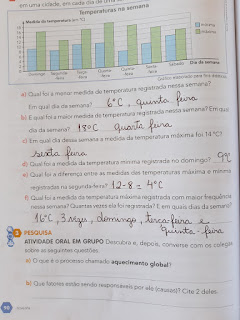 em uma cidade, em cada dia de uma
Temperaturas na semana
Medida da temperatura (em °C)
mínima
máxima
Domingo Segunda-feira Terça-feira Quarta-feira Quinta-feira Sexta-feira Sábado Dia da semana
a) Qual foi a menor medida de temperatura registrada nessa semana?
Em qual dia da semana? 6°C, quinta feira
b) E qual foi a maior medida de temperatura registrada nessa semana? Em qual
dia da semana? 18°C quarta feira
c) Em qual dia dessa semana a medida de temperatura máxima foi 14 °C?
sexta feira
d) Qual foi a medida de temperatura mínima registrada no domingo? 9°C
e) Qual foi a diferença entre as medidas das temperaturas máxima e mínima
registradas na segunda-feira? 12-8=4°C
f) Qual foi a medida da temperatura máxima registrada com maior frequência
nessa semana? Quantas vezes ela foi registrada? E em quais dias da semana?
16°C, 3 vezes, domingo, terça-feira e
quinta-feira
2 PESQUISA
ATIVIDADE ORAL EM GRUPO Descubra e, depois, converse com os colegas
sobre as seguintes questões.
a) O que é o processo chamado aquecimento global?
b) Que fatores estão sendo responsáveis por ele (causas)? Cite 2 deles.